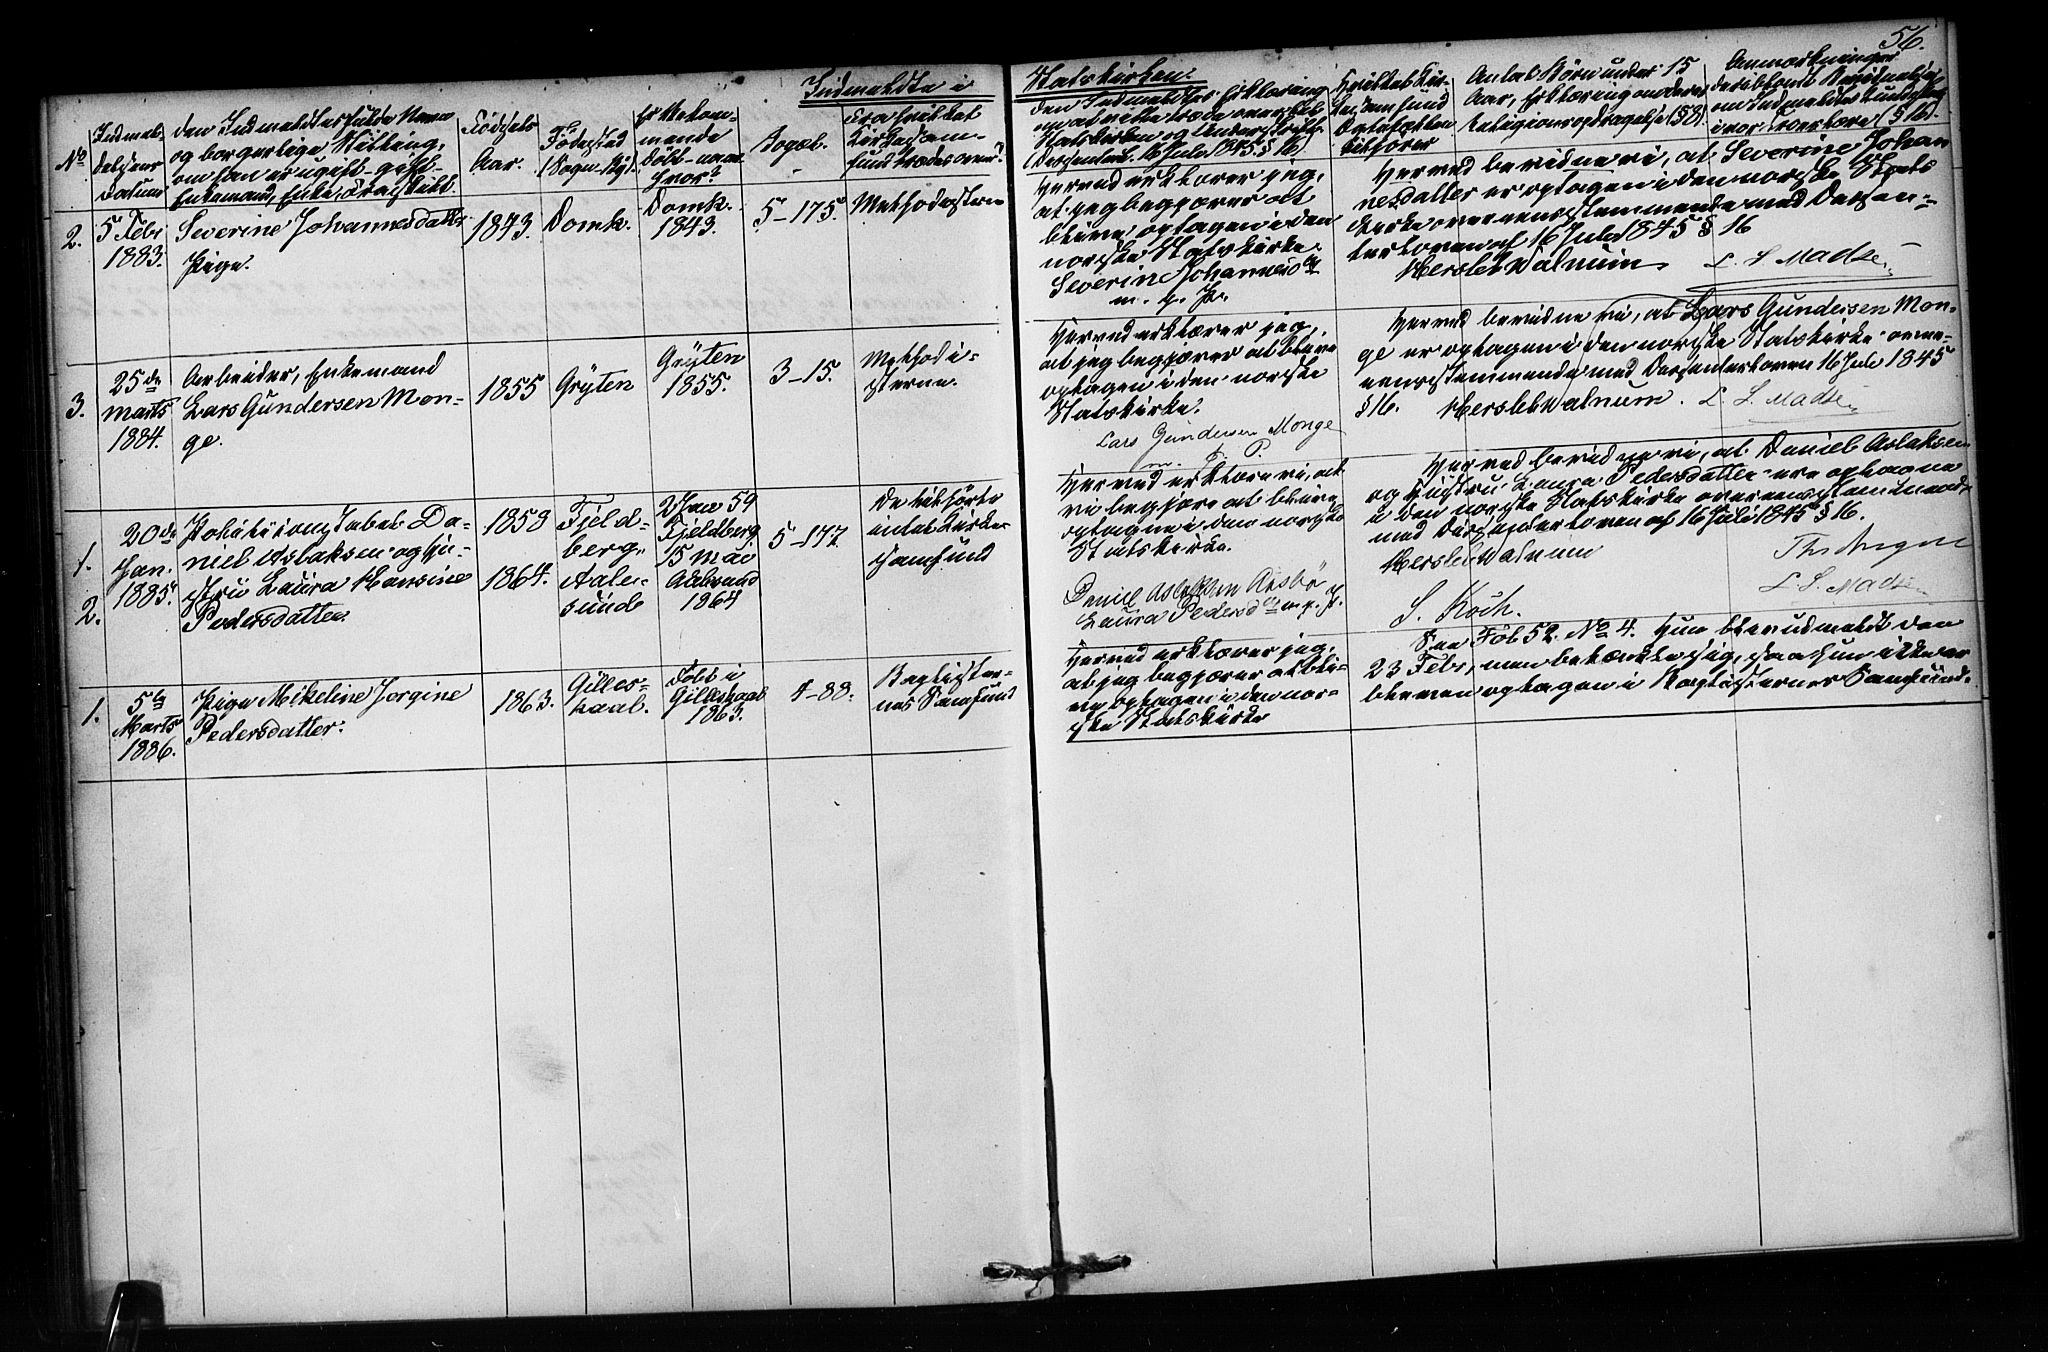 56.
Indmeldte i
Statskirken.
No
Indmel-
delsens
Datum
Den Indmeldtes fulde Navn
og borgerlige Stilling,
om han er ugift - gift -
Enkemand, Enke, fraskilt.
Födsels
Aar.
Födested
(Sogn - By).
Er Vedkom-
mende
döbt - naar
hvor?
Fra hvilket
Kirkesam-
fund trædes over?
Den Indmeldtes Erklæring
om at ville træde over til
Statskirken og Underskrift.
(Dissenterl. 16 Juli 1845. § 16)
Hvilket Kir-
kesamfund
tilhører
Antal Börn under 15
Aar, Erklæring om deres
Religionsopdragelse (§ 8).
Anmærkninger
2.
5 Febr
1883.
Severine Johannesdatter
Pige.
1843.
Domk.
Domk.
1843.
5-175.
Methodisterne
Herved erklærer jeg,
at jeg begjærer at
blive optagen i den
norske Statskirke.
Severine Johannesd
m. p. P.
Herved bevidne vi, at Severine Johan
nesdatter er optagen i den norske Stats
kirke overensstemmende med Dissen-
terloven af 16 Juli 1845 § 16
Hersleb Walnum
L. S Madsen
3.
25de
Marts
1884.
Arbeider, Enkemand
Lars Gundersen Mon-
ge.
1855
Gryten
Gryten
1855.
3-15.
Methodi-
sterne.
Herved erklærer jeg,
at jeg begjærer at blive
optagen i den norske
Statskirke.
Lars Gundersen Monge
m. P. P.
Herved bevidne vi, at Lars Gundersen Mon-
ge er optagen i den norske Statskirke overe-
ensstemmende med Dissenterloven 16 Juli 1845
§ 16. Hersleb Walnum. L. S. Madsen
1.
2.
20de
Jan.
1885.
Politikonstabel Da-
niel Aslaksen og Hu-
stru Laura Hansine
Pedersdatter.
1858
1864.
Fjeld-
berg,
Aale-
sund
Jan 59
Fjeldberg
15 Mai
Aalesund
1864
5-177
De tilhörte
intet Kirke-
samfund
Herved erklære vi, at
vi begjære at blive
optagne i den norske
Statskirke.
Daniel Aslaksen
Laura Pedersd m. p. P.
Herved bevidne vi, at Daniel Aslaksen
og Hustru Laura Pedersdatter ere optagne
i den norske Statskirke overensstemmende
med Dissenterloven af 16 Juli 1845 § 16.
Hersleb Walnum
L. S. Madsen
S. Koch.
1.
5te
Marts
1886.
Pige Mikeline Jorgine
Pedersdatter.
1863.
Gilles-
kaal.
Döbt i
Gilleskaal
1863.
4-88.
Baptister-
nes Samfund
Herved erklærer jeg,
at jeg begjærer at bli-
ve optagen i den nor-
ske Statskirke
Saa Fol: 52. No 4. Hun blev udmeldt den
23 Febr, men betænkte sig, saa hun ikke er
bleven optagen i Baptisternes Samfund.